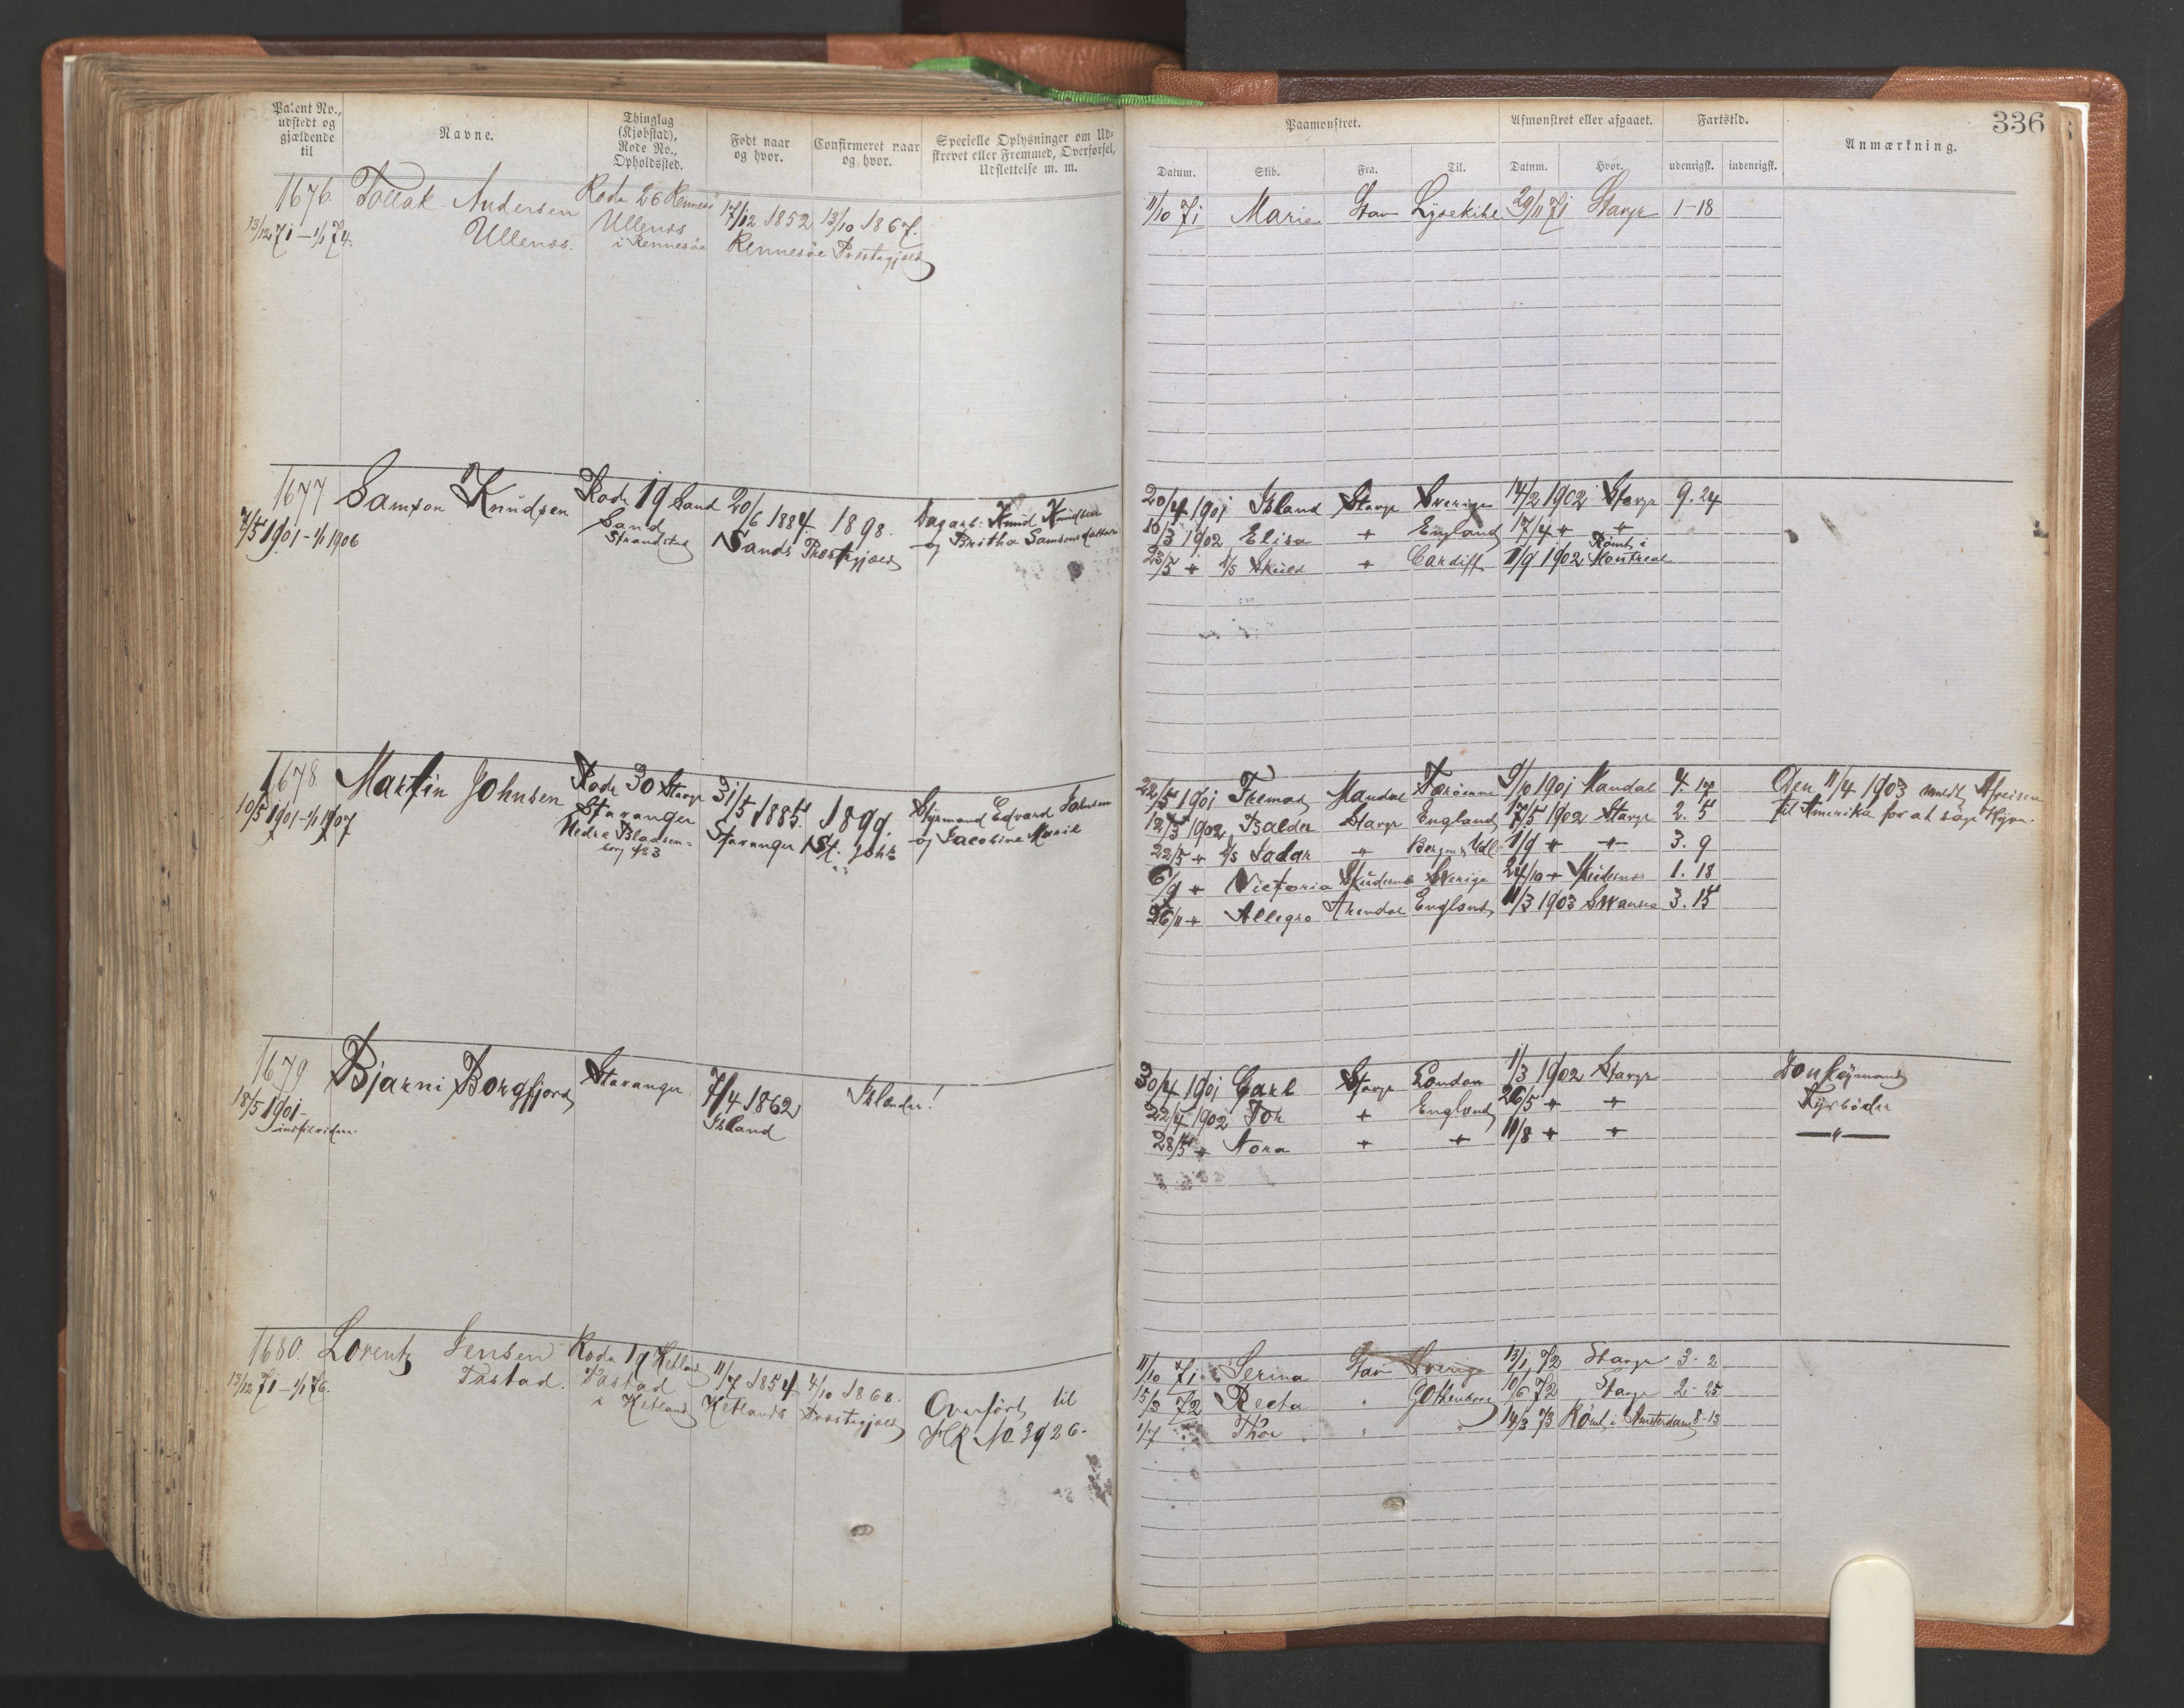 Patent No., udstedt og gjældende til
Navne.
Thinglag (Kjøbstad), Rode No., Opholdssted.
Født naar og hvor.
Confirmeret naar og hvor.
Specielle Oplysninger om Udskrevet eller Fremmed, Overførsel, Udslettelse m. m.
1676. Tollak Andersen Rode 26 Rennesö 17/12 1852 13/10 1867.
13/12 71 - 1/1 74. Ullenes. Ullenes Rennesöe Præstegjæld
i Rennesöe
1677 Samson Knudsen Rode 19 Sand 20/6 1884 1898. Dagarb. Knud Knudsen
7/5 1901 - 1/1 1906 Sand Sands Præstegjæld og Britha Samsonsdatter
Strandsted
1678 Martin Johnsen Rode 30 Stavgr 31/5 1885. 1899. Styrmand Edvard Johnsen
10/5 1901 - 1/1 1907 Stavanger Stavanger St. Joh. og Jacobine Marie
Nedre Bladsen-
borg 3
1679 Bjarni Borgfjord Stavanger 7/4 1862 Islænder!
18/5 1901 - Island
indtil videre.
1680. Lorentz Jensen Rode 19 Hetland 11/7 1854 4/10 1868.
13/12 71 - 1/1 76. Tastad. Tastad Hetlands Præstegjæld Overført til
i Hetland HR No 3926.
336
Paamønstret.
Afmønstret eller afgaaet.
Fartstid.
Anmærkning.
Datum. Skib. Fra. Til. Datum. Hvor. udenrigsk. indenrigsk.
11/10 71 Marie Stav Lysekihl 29/11 71 Stavgr 1-18
20/4 1901 Island Stavgr Sverige 14/2 1902 Stavgr 9. 24
10/3 1902 Elisa " England 17/4 " "
23/5 " D/S Skuld " Cardiff 11/9 1902 Römt i Montreal
22/5 1901 Fremad Mandal Færöerne 9/10 1901 Mandal 4. 17 Den 11/4 1903 meldt Afreisen
12/3 1902 Balder Stavgr England 17/5 1902 Stavgr 2. 5 til Amerika for at søge Hyre.
22/5 " D/S Jadar " Bergen & Udl 1/9 " " 3. 9
6/9 " Victoria Skudesnes Sverige 24/10 " Skudesnes 1. 18
26/11 " Allegro Arendal England 11/3 1903 Swansea 3. 15
30/4 1901 Carl Stavgr London 1/3 1902 Stavgr Donkeymand
22/4 1902 Tor " England 26/5 " " Fyrböder
28/5 " Nora " " 11/8 " " — " —
11/10 71 Serina Stav Sverige 13/1 72 Stavgr 3-2
15/3 72 Recta " Gothenborg 10/6 72 Stavgr 2-25
1/7 Thor " " 14/3 73 Römt i Amsterdam 8-13